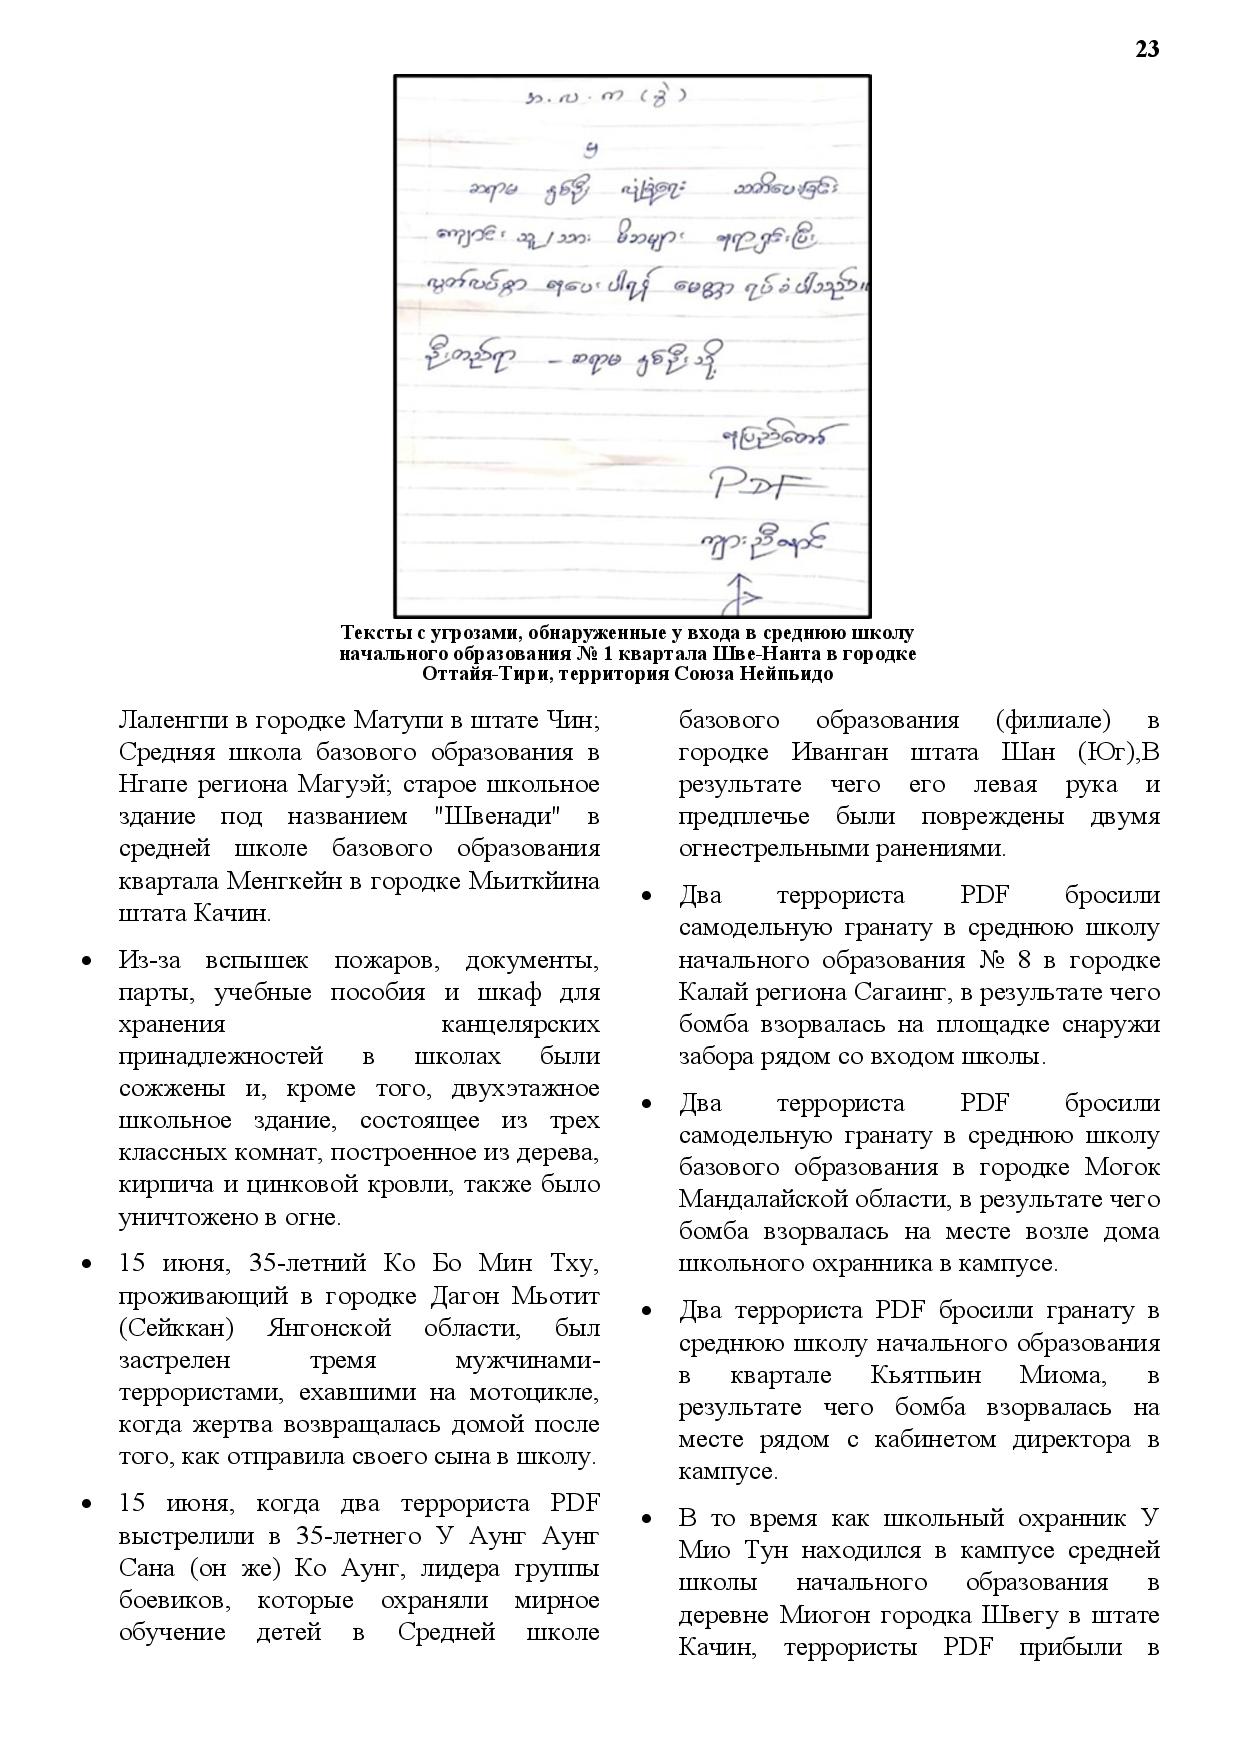 23
အ.လ.က (ခွဲ)
မှ
ဆရာမ နှစ်ဦး လုံခြုံရေး သတိပေးခြင်း
ကျောင်း သူ/သား မိဘများ
လွတ်လပ်စွာ ပါရန် မေတ္တာ ရပ်ခံပါသည်။
ဦးတည်ရာ – ဆရာမ နှစ်ဦးသို့
နေပြည်တော်
PDF
ကျားညီနောင်
Тексты с угрозами, обнаруженные у входа в среднюю школу
начального образования № 1 квартала Шве-Нанта в городке
Оттайя-Тири, территория Союза Нейпьидо
Лаленгпи в городке Матупи в штате Чин;
Средняя школа базового образования в
Нгапе региона Магуэй; старое школьное
здание под названием "Швенади" в
средней школе базового образования
квартала Менгкейн в городке Мьиткйина
штата Качин.
• Из-за вспышек пожаров, документы,
парты, учебные пособия и шкаф для
хранения канцелярских
принадлежностей в школах были
сожжены и, кроме того, двухэтажное
школьное здание, состоящее из трех
классных комнат, построенное из дерева,
кирпича и цинковой кровли, также было
уничтожено в огне.
• 15 июня, 35-летний Ко Бо Мин Тху,
проживающий в городке Дагон Мьотит
(Сейккан) Янгонской области, был
застрелен тремя мужчинами-
террористами, ехавшими на мотоцикле,
когда жертва возвращалась домой после
того, как отправила своего сына в школу.
• 15 июня, когда два террориста PDF
выстрелили в 35-летнего У Аунг Аунг
Сана (он же) Ко Аунг, лидера группы
боевиков, которые охраняли мирное
обучение детей в Средней школе
базового образования (филиале) в
городке Иванган штата Шан (Юг),В
результате чего его левая рука и
предплечье были повреждены двумя
огнестрельными ранениями.
• Два террориста PDF бросили
самодельную гранату в среднюю школу
начального образования № 8 в городке
Калай региона Сагаинг, в результате чего
бомба взорвалась на площадке снаружи
забора рядом со входом школы.
• Два террориста PDF бросили
самодельную гранату в среднюю школу
базового образования в городке Могок
Мандалайской области, в результате чего
бомба взорвалась на месте возле дома
школьного охранника в кампусе.
• Два террориста PDF бросили гранату в
среднюю школу начального образования
в квартале Кьятпьин Миома, в
результате чего бомба взорвалась на
месте рядом с кабинетом директора в
кампусе.
• В то время как школьный охранник У
Мио Тун находился в кампусе средней
школы начального образования в
деревне Миогон городка Швегу в штате
Качин, террористы PDF прибыли в